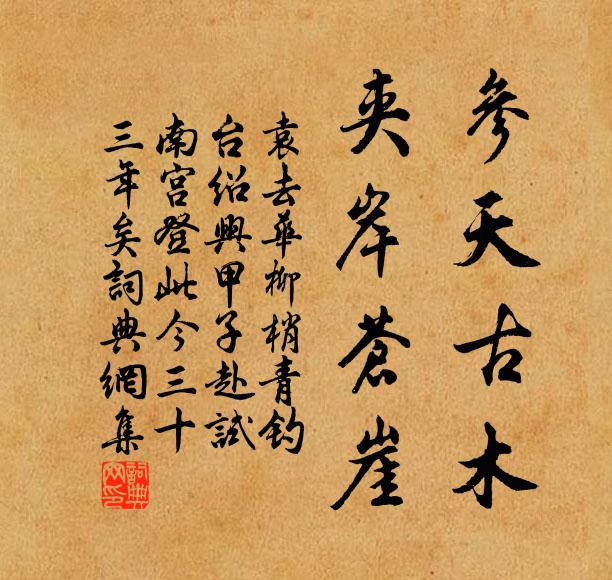 參天古木
夾岸蒼崖
袁去華柳梢青釣
台紹興甲子赴試
南宮登此今三十
三年矣詞典網集
詞典
网印